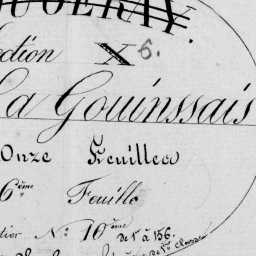 UGERAY.
ction X 6.
La Gouinssais
Onze Feuilles
6ème Feuille
tier N: 10ème de 1 à 156.